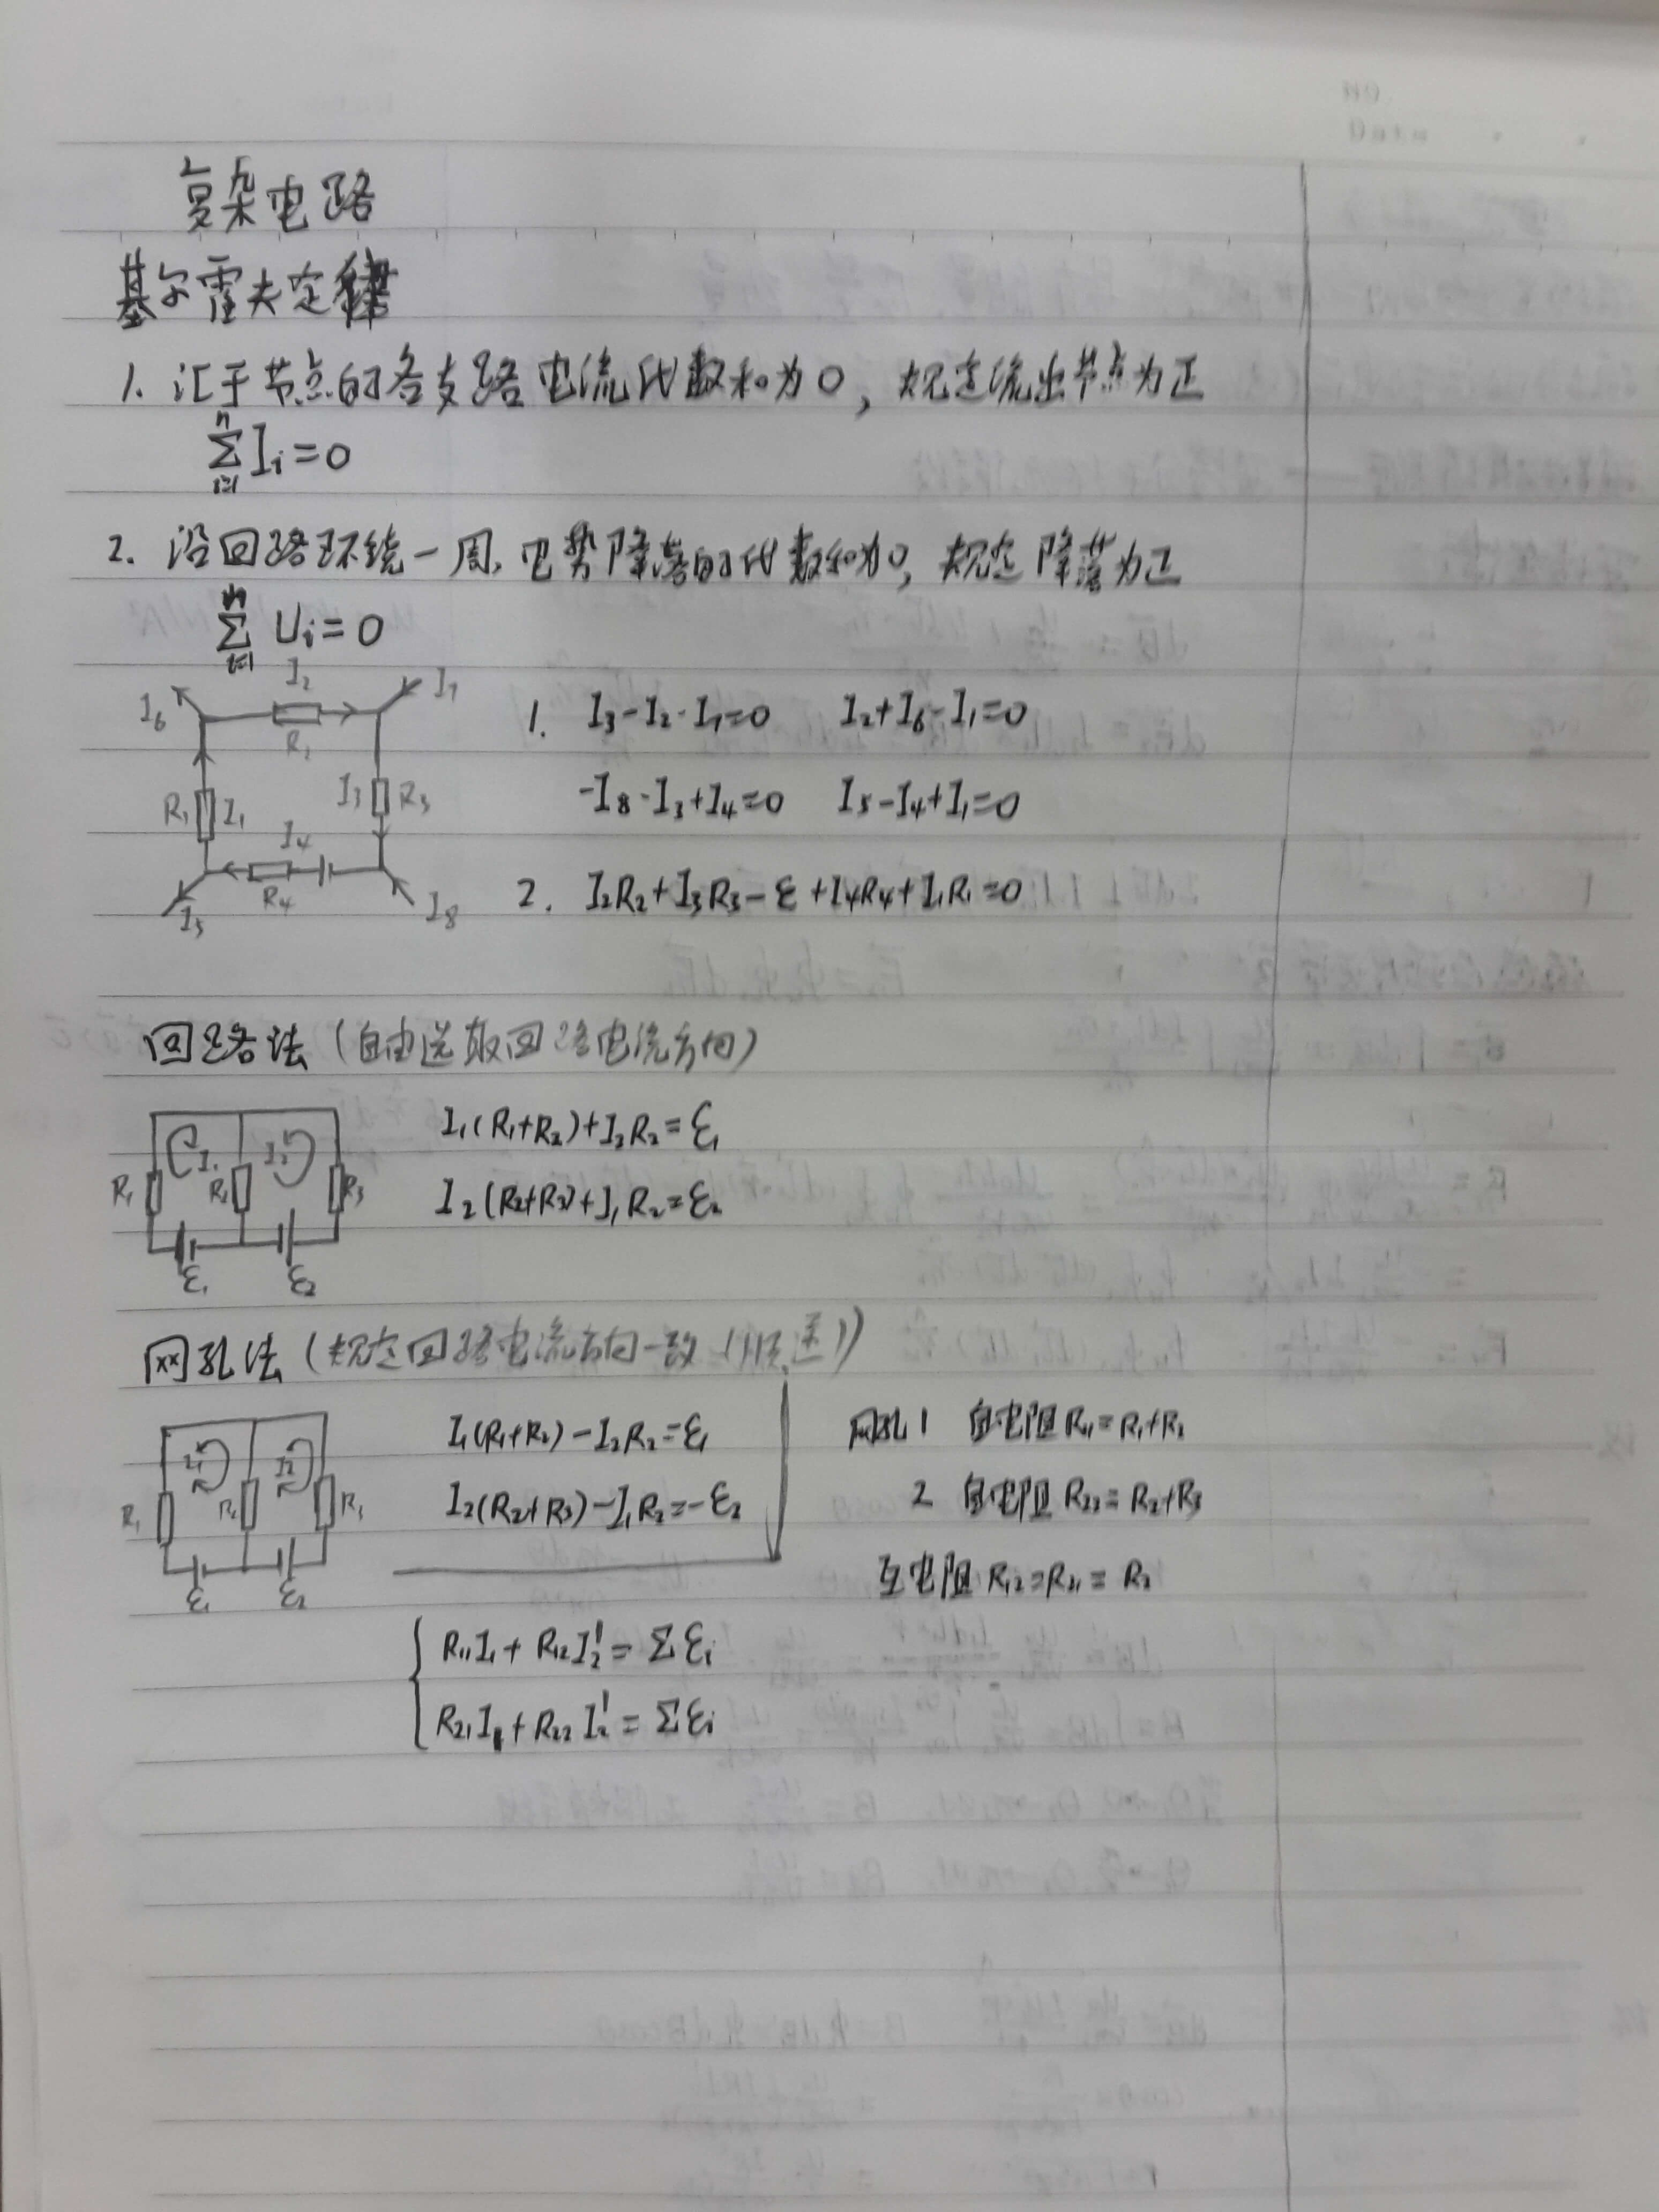 复杂电路
基尔霍夫定律
1. 汇于节点的各支路电流代数和为0，规定流出节点为正
n
∑ Iᵢ=0
i=1
2. 沿回路环绕一周，电势降落的代数和为0，规定降落为正
n
∑ Uᵢ=0
i=1
I₆ I₂ I₇
R₁
R₁ I₁ I₃ R₃
I₄
R₄
I₅ I₈
1. I₃-I₂-I₇=0 I₂+I₆-I₁=0
-I₈-I₃+I₄=0 I₅-I₄+I₁=0
2. I₂R₂+I₃R₃-ε+I₄R₄+I₁R₁=0
回路法（自由选取回路电流方向）
I₁ I₂
R₁ R₂ R₃
ε₁ ε₂
I₁(R₁+R₂)+I₂R₂=ε₁
I₂(R₂+R₃)+I₁R₂=ε₂
网孔法（规定回路电流方向一致（顺/逆））
I₁ I₂
R₁ R₂ R₃
ε₁ ε₂
I₁(R₁+R₂)-I₂R₂=ε₁
I₂(R₂+R₃)-I₁R₂=-ε₂
网孔1 自电阻R₁₁=R₁+R₂
2 自电阻R₂₂=R₂+R₃
互电阻R₁₂=R₂₁=R₂
R₁₁I₁+R₁₂I₂'=∑εᵢ
R₂₁I₁+R₂₂I₂'=∑εᵢ